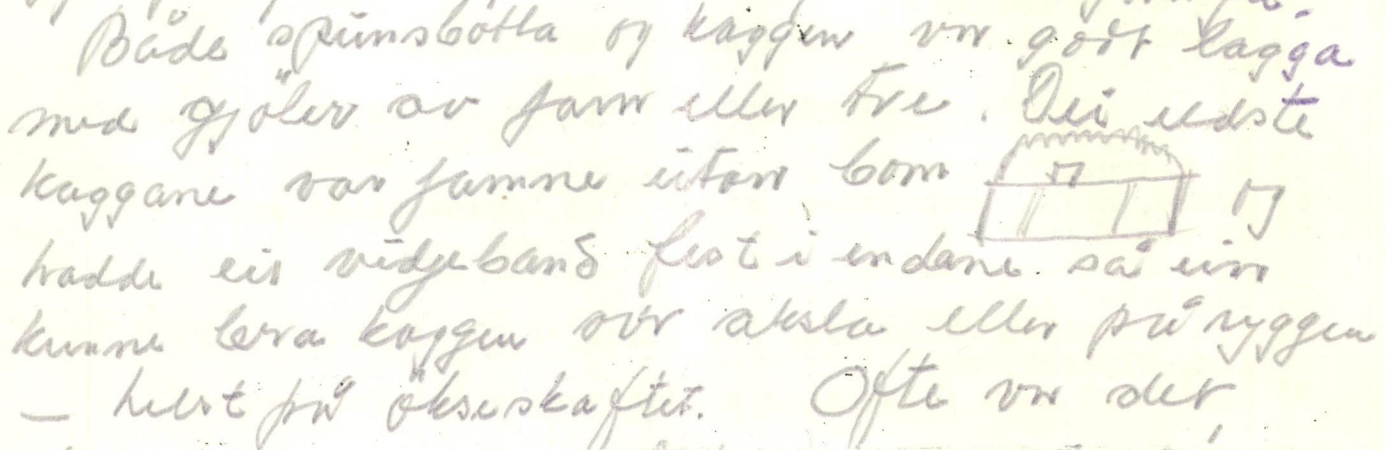 Både spunsbotla og kaggen var godt lagga
med gjöler av jarn eller tre. Dei eldste
kaggane var jamne utan bom og
hadde eit vidjeband fest i endane så ein
kunne bera kaggen over aksla eller på ryggen
— helst på ökseskaftet. Ofte var det